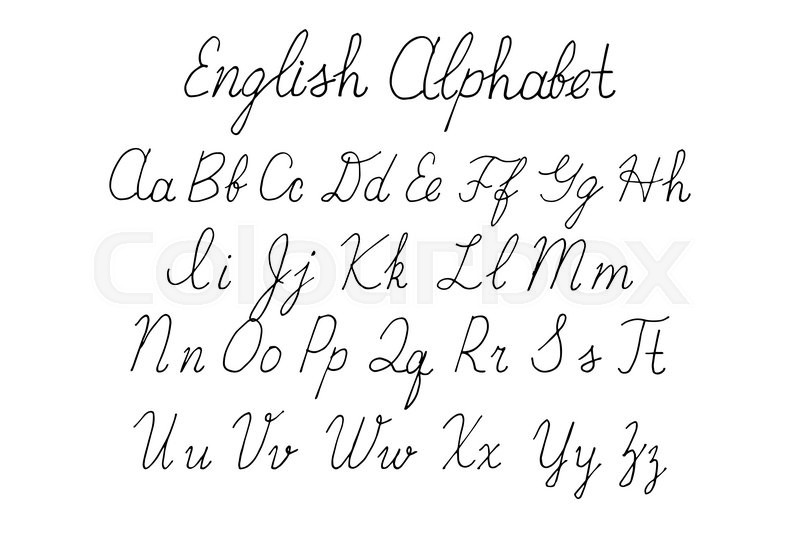 English Alphabet
Aa Bb Cc Dd Ee Ff Gg Hh
Ii Jj Kk Ll Mm
Nn Oo Pp Qq Rr Ss Tt
Uu Vv Ww Xx Yy Zz
Colourbox